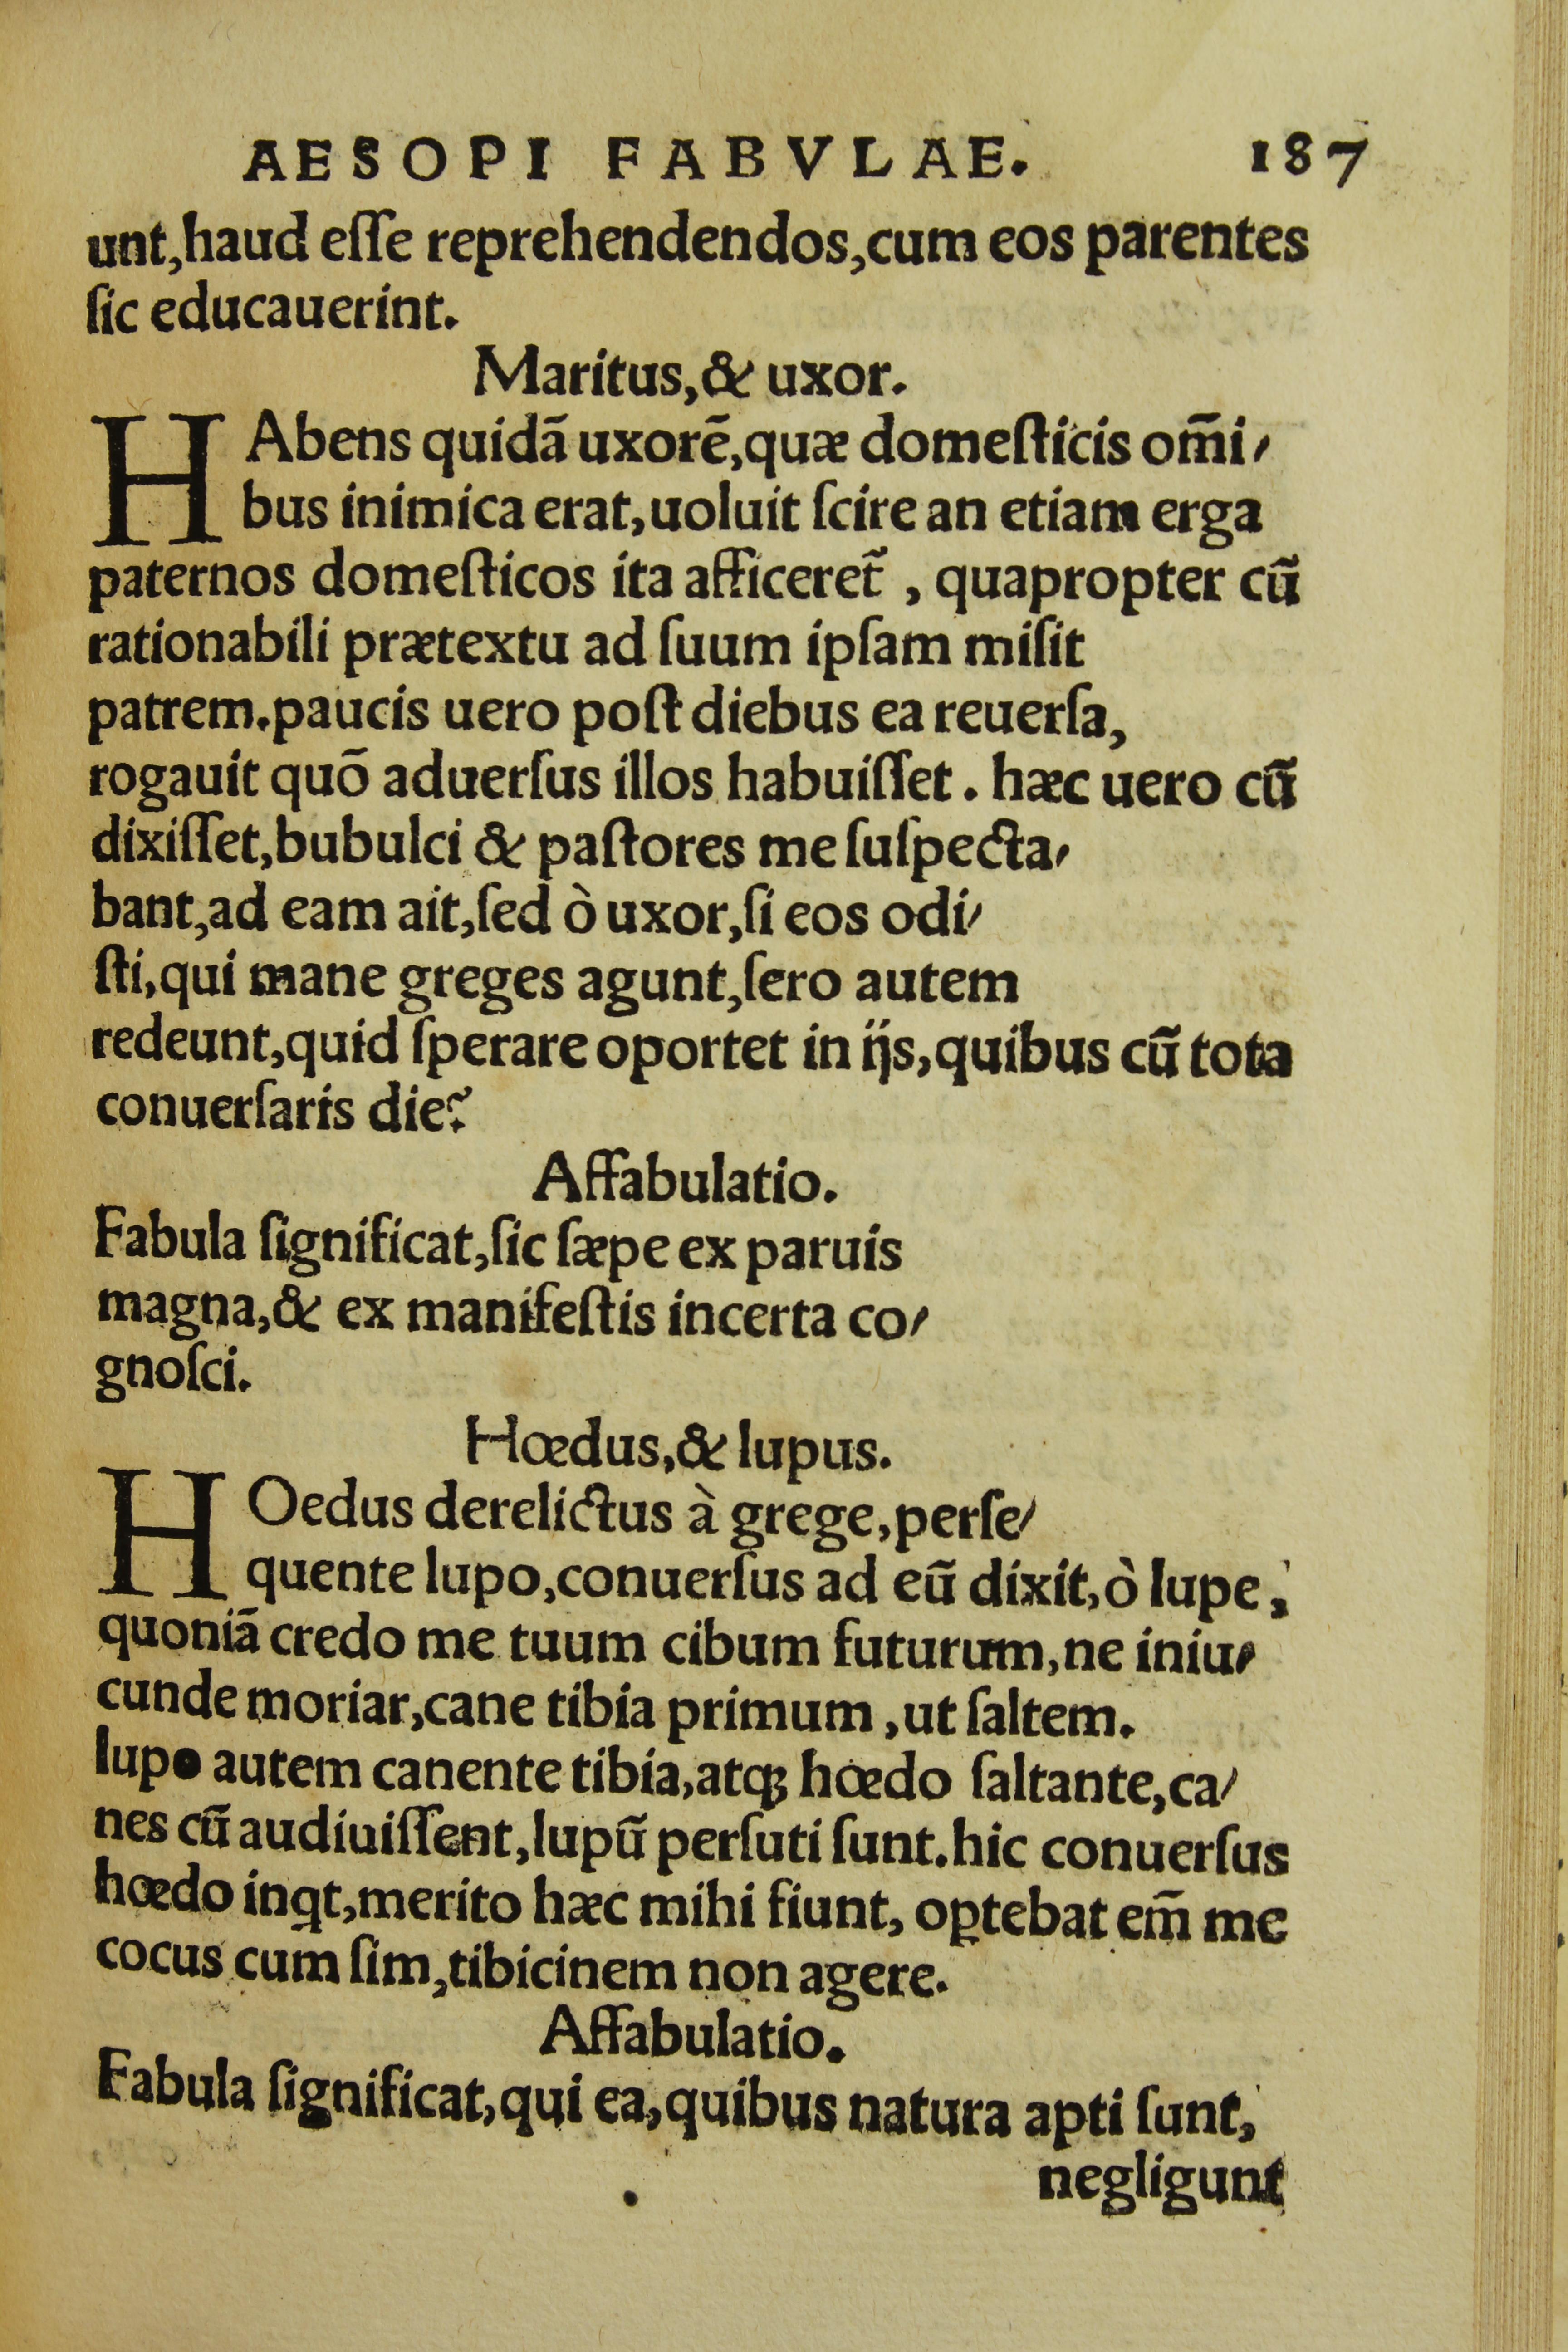 AESOPI FABVLAE. 187
unt,haud eſſe reprehendendos,cum eos parentes
ſic educauerint.
Maritus,& uxor.
HAbens quidã uxorẽ,quæ domeſticis om̃i-
bus inimica erat,uoluit ſcire an etiam erga
paternos domeſticos ita afficeret̃ , quapropter cũ
rationabili prætextu ad ſuum ipſam miſit
patrem.paucis uero poſt diebus ea reuerſa,
rogauit quõ aduerſus illos habuiſſet . hæc uero cũ
dixiſſet,bubulci & paſtores me ſuſpecta-
bant,ad eam ait,ſed ò uxor,ſi eos odi-
ſti,qui mane greges agunt,ſero autem
redeunt,quid ſperare oportet in ijs,quibus cũ tota
conuerſaris die?
Affabulatio.
Fabula ſignificat,ſic ſæpe ex paruis
magna,& ex manifeſtis incerta co-
gnoſci.
Hœdus,& lupus.
HOedus derelictus à grege,perſe-
quente lupo,conuerſus ad eũ dixit,ò lupe,
quoniã credo me tuum cibum futurum,ne iniu-
cunde moriar,cane tibia primum ,ut ſaltem.
lupo autem canente tibia,atq; hœdo ſaltante,ca-
nes cũ audiuiſſent,lupũ perſuti ſunt.hic conuerſus
hœdo inqt,merito hæc mihi fiunt, oꝑtebat em̃ me
cocus cum ſim,tibicinem non agere.
Affabulatio.
Fabula ſignificat,qui ea,quibus natura apti ſunt,
negligunt